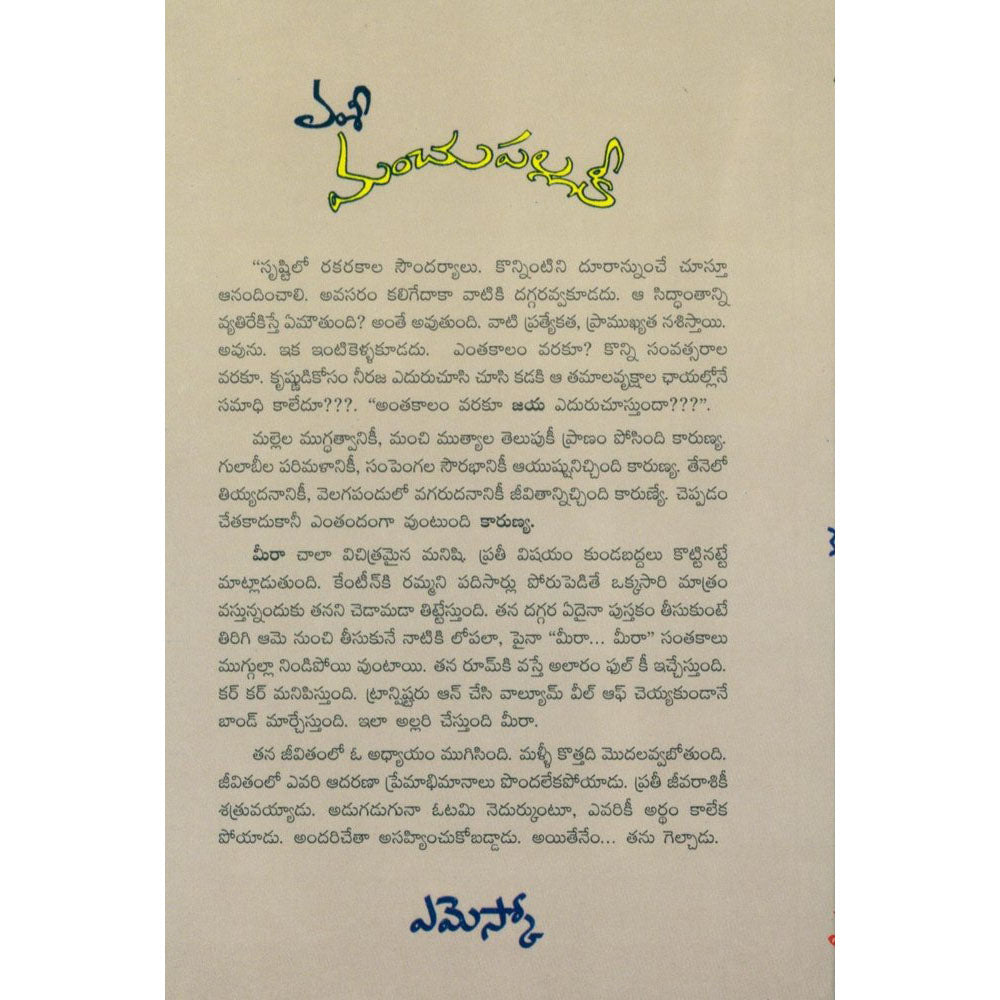 వంశీ
మంచుపల్లకీ
“సృష్టిలో రకరకాల సౌందర్యాలు. కొన్నింటిని దూరాన్నుంచే చూస్తూ
ఆనందించాలి. అవసరం కలిగేదాకా వాటికి దగ్గరవ్వకూడదు. ఆ సిద్ధాంతాన్ని
వ్యతిరేకిస్తే ఏమౌతుంది? అంతే అవుతుంది. వాటి ప్రత్యేకత, ప్రాముఖ్యత నశిస్తాయి.
అవును. ఇక ఇంటికెళ్ళకూడదు. ఎంతకాలం వరకూ? కొన్ని సంవత్సరాల
వరకూ. కృష్ణుడికోసం నీరజ ఎదురుచూసి చూసి కడకి ఆ తమాలవృక్షాల ఛాయల్లోనే
సమాధి కాలేదూ???. “అంతకాలం వరకూ జయ ఎదురుచూస్తుందా???”.
మల్లెల ముగ్ధత్వానికీ, మంచి ముత్యాల తెలుపుకీ ప్రాణం పోసింది కారుణ్య.
గులాబీల పరిమళానికీ, సంపెంగల సౌరభానికీ ఆయుష్షునిచ్చింది కారుణ్య. తేనెలో
తియ్యదనానికీ, వెలగపండులో వగరుదనానికీ జీవితాన్నిచ్చింది కారుణ్యే. చెప్పడం
చేతకాదుకానీ ఎంతందంగా వుంటుంది కారుణ్య.
మీరా చాలా విచిత్రమైన మనిషి. ప్రతీ విషయం కుండబద్దలు కొట్టినట్టే
మాట్లాడుతుంది. కేంటీన్‌కి రమ్మని పదిసార్లు పోరుపెడితే ఒక్కసారి మాత్రం
వస్తున్నందుకు తనని చెడామడా తిట్టేస్తుంది. తన దగ్గర ఏదైనా పుస్తకం తీసుకుంటే
తిరిగి ఆమె నుంచి తీసుకునే నాటికి లోపలా, పైనా “మీరా... మీరా” సంతకాలు
ముగ్గుల్లా నిండిపోయి వుంటాయి. తన రూమ్‌కి వస్తే అలారం ఫుల్ కీ ఇచ్చేస్తుంది.
కర్ కర్ మనిపిస్తుంది. ట్రాన్షిష్టరు ఆన్ చేసి వాల్యూమ్ వీల్ ఆఫ్ చెయ్యకుండానే
బాండ్ మార్చేస్తుంది. ఇలా అల్లరి చేస్తుంది మీరా.
తన జీవితంలో ఓ అధ్యాయం ముగిసింది. మళ్ళీ కొత్తది మొదలవ్వబోతుంది.
జీవితంలో ఎవరి ఆదరణా ప్రేమాభిమానాలు పొందలేకపోయాడు. ప్రతీ జీవరాశికీ
శత్రువయ్యాడు. అడుగడుగునా ఓటమి నెదుర్కుంటూ, ఎవరికీ అర్థం కాలేక
పోయాడు. అందరిచేతా అసహ్యించుకోబడ్డాడు. అయితేనేం... తను గెల్చాడు.
ఎమెస్కో